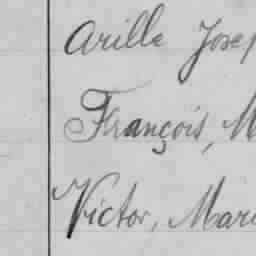 Arille Josep
François, M
Victor, Mari